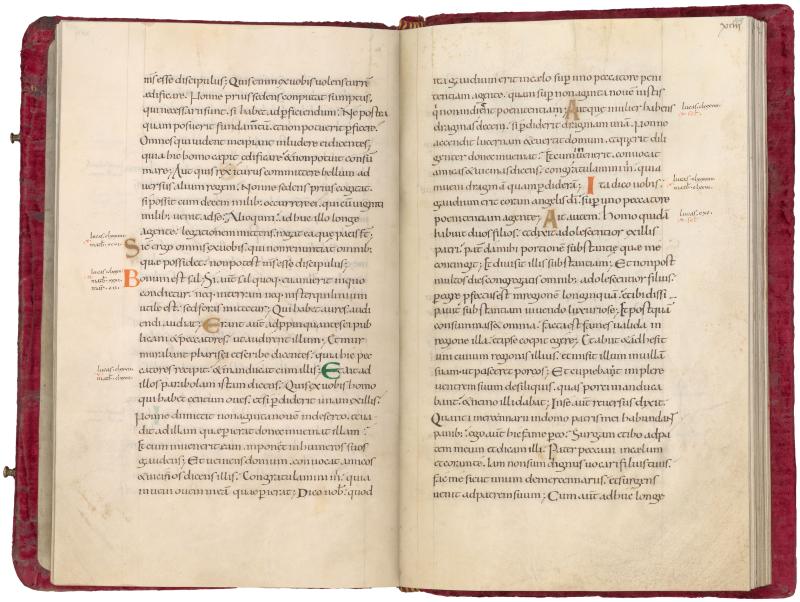 m̄ esse discipulus; Quis enim ex uobis uolens turrē
ædificare. Nonne prius sedens conputat sumptus,
qui necessarii sunt. si habet ad perficiendum. Ne postea
quam posuerit fundamtū. et non potuerit pficere.
Omnes qui uident incipiant inludere ei dicentes;
quia hic homo cepit edificare & non potuit consū
mare; Aut quis rex iturus committere bellum ad
uersus alium regem. Nonne sedens prius cogitat.
si possit cum decem milib; occurrere ei. qui cū uiginti
milib; uenit ad se; Alioquin. adhuc illo longe
agente. legationem mittens. rogat ea quę pacis st̄;
Sic ergo omnis ex uobis. qui non renuntiat omnib;
quę possidet. non potest m̄s esse discipulus;
Bonum est sal. Si aut̄ sal quoq; euanuerit in quo
condietur. neq; in terram neq; in sterquilinium
utile est. sed foras mittetur; Qui habet aures audi
endi. audiat; Erant aut̄ adppinquantes ei pub
licani & peccatores. ut audirent illum; Et mur
murabant pharisei et scribe dicentes. quia hic pec
catores recipit. & manducat cum illis; Et ait ad
illos parabolam istam dicens. Quis ex uobis homo
qui habet centum oues. et si pdiderit unam ex illis.
Nonne dimittit nonaginta nouē in deserto. et ua
dit ad illam quę perierat donec inueniat illam;
Et cum inuenerit eam. imponet in humeros suos
gaudens; Et ueniens domum. conuocat amicos
& uicinos dicens illis; Congratulamini m̄. quia
inueni ouem meā quę perierat; Dico uob̄. quod
xciiii
ita gaudium erit in cælo sup̄ uno peccatore peni
tentiam agente. quam sup̄ nonaginta nouē iustis
qui non indigent poenitentiam; Aut quę mulier habens
dragmas decem. si pdiderit dragmam unā. Nonne
accendit lucernam & euerrit domum. et querit dili
genter donec inueniat; Et cum inuenerit. conuocat
amicas & uicinas dicens. congratulamini m̄. quia
inueni dragmā quam pdiderā; Ita dico uobis.
gaudium erit coram angelis dī. sup̄ uno peccatore
poenitentiam agente; Ait autem. Homo quidā
habuit duos filios. et dixit adolescentior ex illis
patri. pat̄ da mihi portionē substantię quę me
contingit; Et diuisit illis substantiam; Et non post
multos dies congregatis omnib; adolescentior filius.
pegre pfectus est in regionē longinquā. et ibi dissi
pauit substantiam uiuendo luxuriose; Et postquā
consummasset omnia. facta est fames ualida in
regione illa. et ipse coepit egere; Et abiit & adhesit
uni ciuium regionis illius. et misit illum in uillā
suam. ut pasceret porcos; Et cupiebat implere
uentrem suum de siliquis. quas porci manduca
bant. & nemo illi dabat; In se aut̄ reuersus dixit.
Quanti mercennarii in domo patris mei habundant
panib; ego aut̄ hic fame pereo; Surgam et ibo ad pa
trem meum et dicam illi. Pater peccaui in cælum
et coram te. Iam non sum dignus uocari filius tuus.
fac me sicut unum de mercennariis. et surgens
uenit ad patrem suum; Cum aut̄ adhuc longe